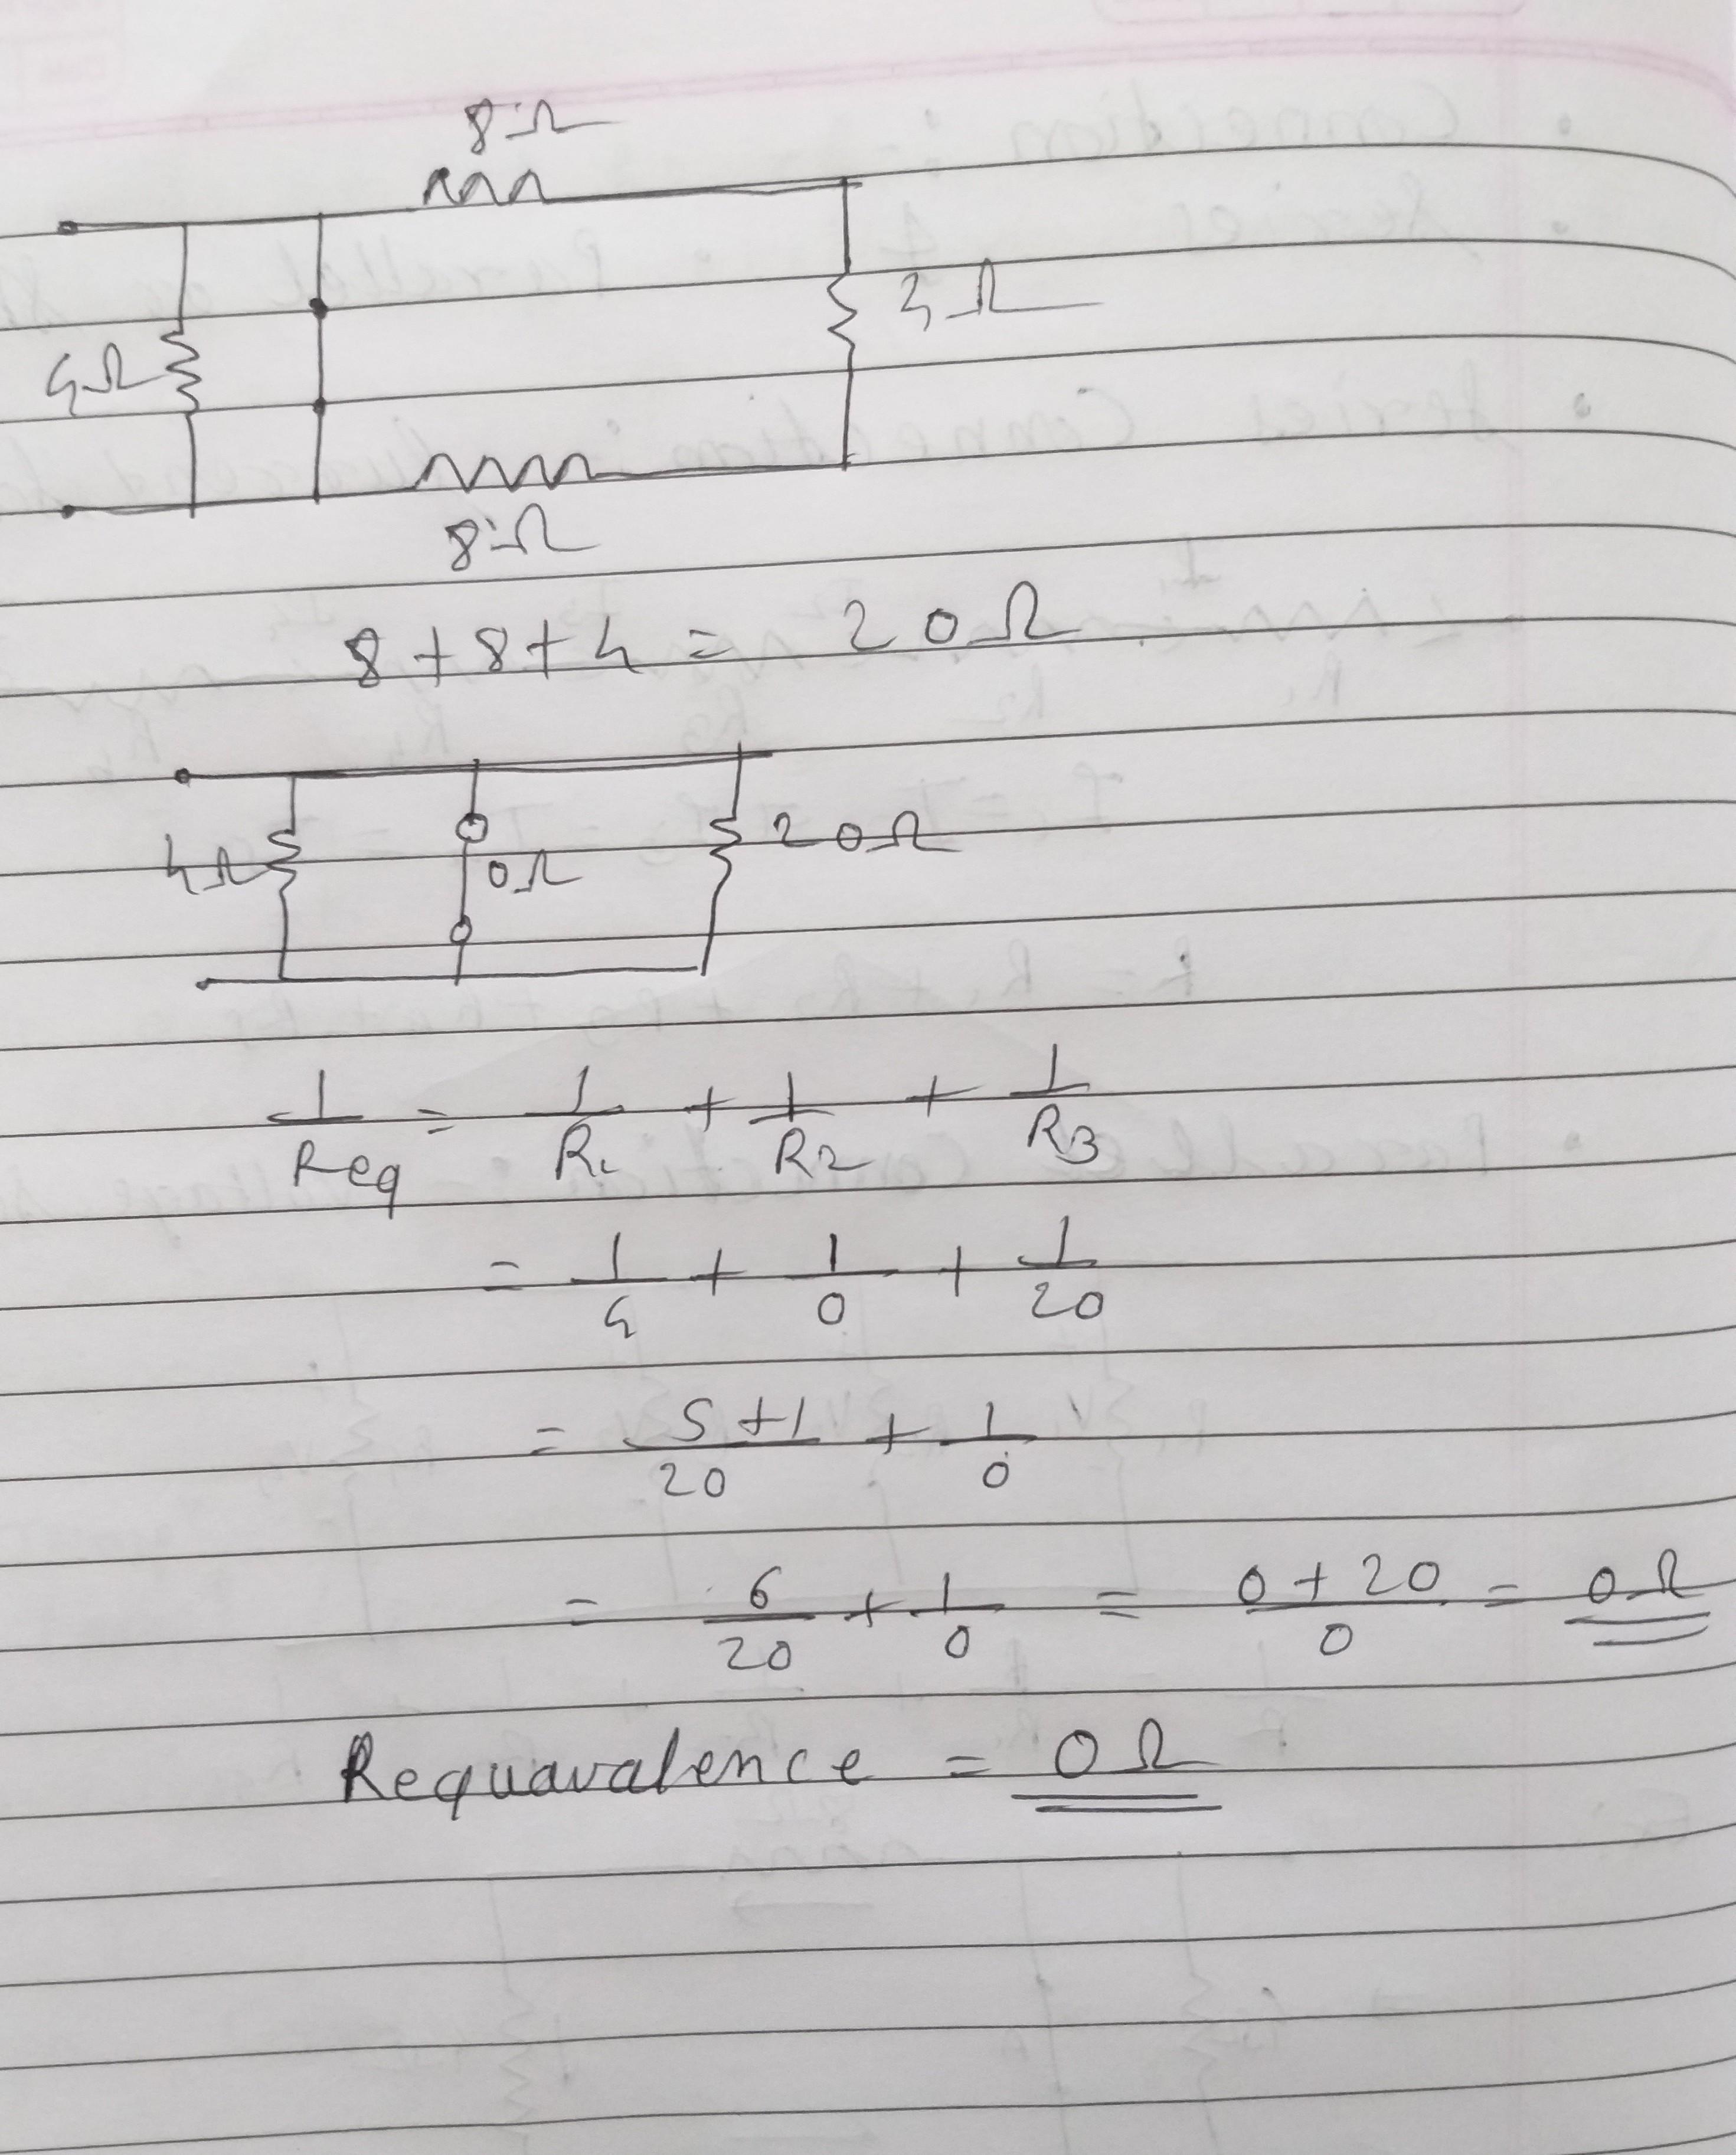 8Ω
4Ω
4Ω
8Ω
8+8+4 = 20Ω
4Ω
0Ω
20Ω
1/Req = 1/R1 + 1/R2 + 1/R3
= 1/4 + 1/0 + 1/20
= 5+1/20 + 1/0
= 6/20 + 1/0 = 0+20/0 = 0Ω
Requavalence = 0Ω